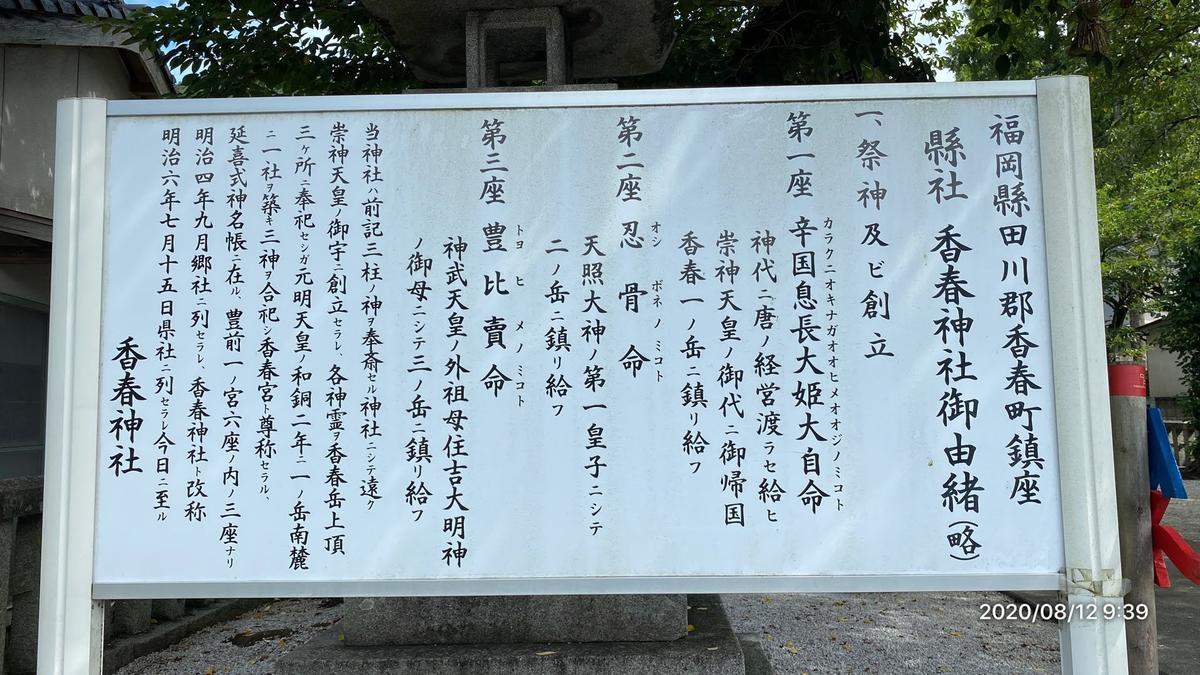 福岡縣田川郡香春町鎮座
縣社 香春神社御由緒(略)
一、祭神及ビ創立
第一座 辛国息長大姫大自命
カラクニオキナガオオヒメオオジノミコト
神代ニ唐ノ経営渡ラセ給ヒ
崇神天皇ノ御代ニ御帰国
香春一ノ岳ニ鎮リ給フ
第二座 忍骨命
オシボネノミコト
天照大神ノ第一皇子ニシテ
二ノ岳ニ鎮リ給フ
第三座 豊比賣命
トヨヒメノミコト
神武天皇ノ外祖母住吉大明神
ノ御母ニシテ三ノ岳ニ鎮リ給フ
当神社ハ前記三柱ノ神ヲ奉斎セル神社ニシテ遠ク
崇神天皇ノ御宇ニ創立セラレ、各神霊ヲ香春岳上頂
三ヶ所ニ奉祀セシガ元明天皇ノ和銅二年ニ一ノ岳南麓
ニ一社ヲ築キ三神ヲ合祀シ香春宮ト尊称セラル、
延喜式神名帳ニ在ル、豊前一ノ宮六座ノ内ノ三座ナリ
明治四年九月郷社ニ列セラレ、香春神社ト改称
明治六年七月十五日県社ニ列セラレ今日ニ至ル
香春神社
2020/08/12 9:39